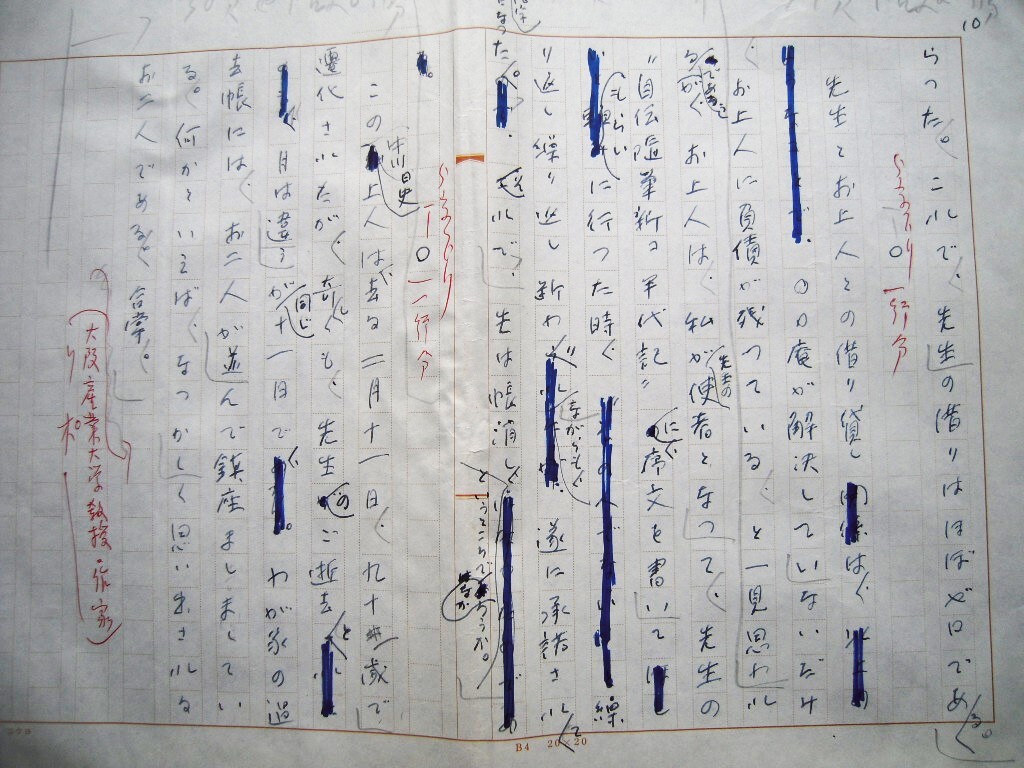 10
らつた。これで、先生の借りはほぼゼロであ
る。
一行分
先生とお上人との借り貸しは、
のの庵が解決していないだけ
で、
お上人に負債が残っていると一見思われ
るが、お上人は、私が先生の使者となって、先生の
であるが
"自伝随筆新コ半代記"に序文を書いて
もらいに行った時、繰
り返し繰り返し断わりながらも、遂に承諾されて
になった。それで、先は帳消し
というところであろうか。
一行分
この上人は、去る二月十一日、九十歳で
遷化されたが、奇しくも、先生のご逝去と
月は違うが同じ十一日で、わが家の過
去帳には、お二人が並んで鎮座ましましてい
る。何かといえば、なつかしく思い出される
お二人である。合掌。
(大阪産業大学教授・作家)
B4 20×20